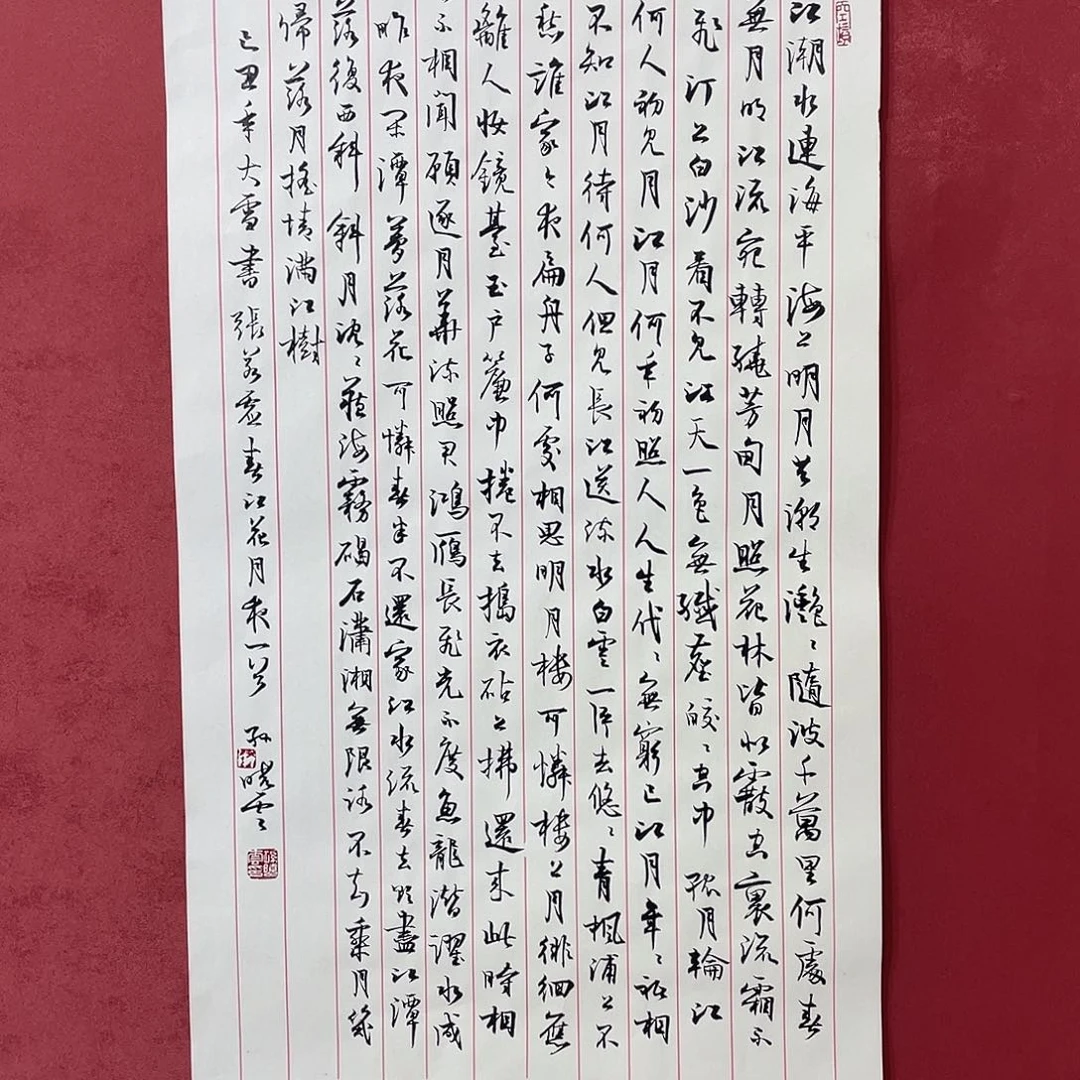 江潮水連海平海上明月共潮生灩々隨波千萬里何處春
無月明江流宛轉繞芳甸月照花林皆似霰空裏流霜不
飛汀上白沙看不見江天一色無纖塵皎々空中孤月輪江
何人初見月江月何年初照人人生代々無窮已江月年々祇相
不知江月待何人但見長江送流水白雲一片去悠々青楓浦上不
愁誰家今夜扁舟子何處相思明月樓可憐樓上月徘徊應
離人妝鏡臺玉戶簾中捲不去搗衣砧上拂還來此時相
不相聞願逐月華流照君鴻雁長飛光不度魚龍潛躍水成
昨夜閑潭夢落花可憐春半不還家江水流春去欲盡江潭
落復西斜斜月沉々藏海霧碣石瀟湘無限路不知乘月幾
歸落月搖情滿江樹
己丑年大雪書張若虛春江花月夜一首 孫曉雲